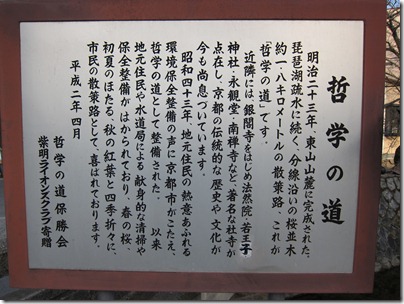 哲学の道
明治二十三年、東山山麓に完成された、
琵琶湖疏水に続く、分線沿いの桜並木
約一・八キロメートルの散策路、これが
「哲学の道」です。
近隣には、銀閣寺をはじめ法然院・若王子
神社・永観堂・南禅寺など、著名な社寺が
点在し、京都の伝統的な歴史や文化が
今も尚息づいています。
昭和四十三年、地元住民の熱意あふれる
環境保全整備の声に京都市がこたえ、
哲学の道として整備された。以来
地元住民や水道局による献身的な清掃や
保全整備がはかられており、春の桜、
初夏のほたる、秋の紅葉と四季折々に、
市民の散策路として、喜ばれております。
平成二年四月
哲学の道保勝会
紫明ライオンズクラブ寄贈